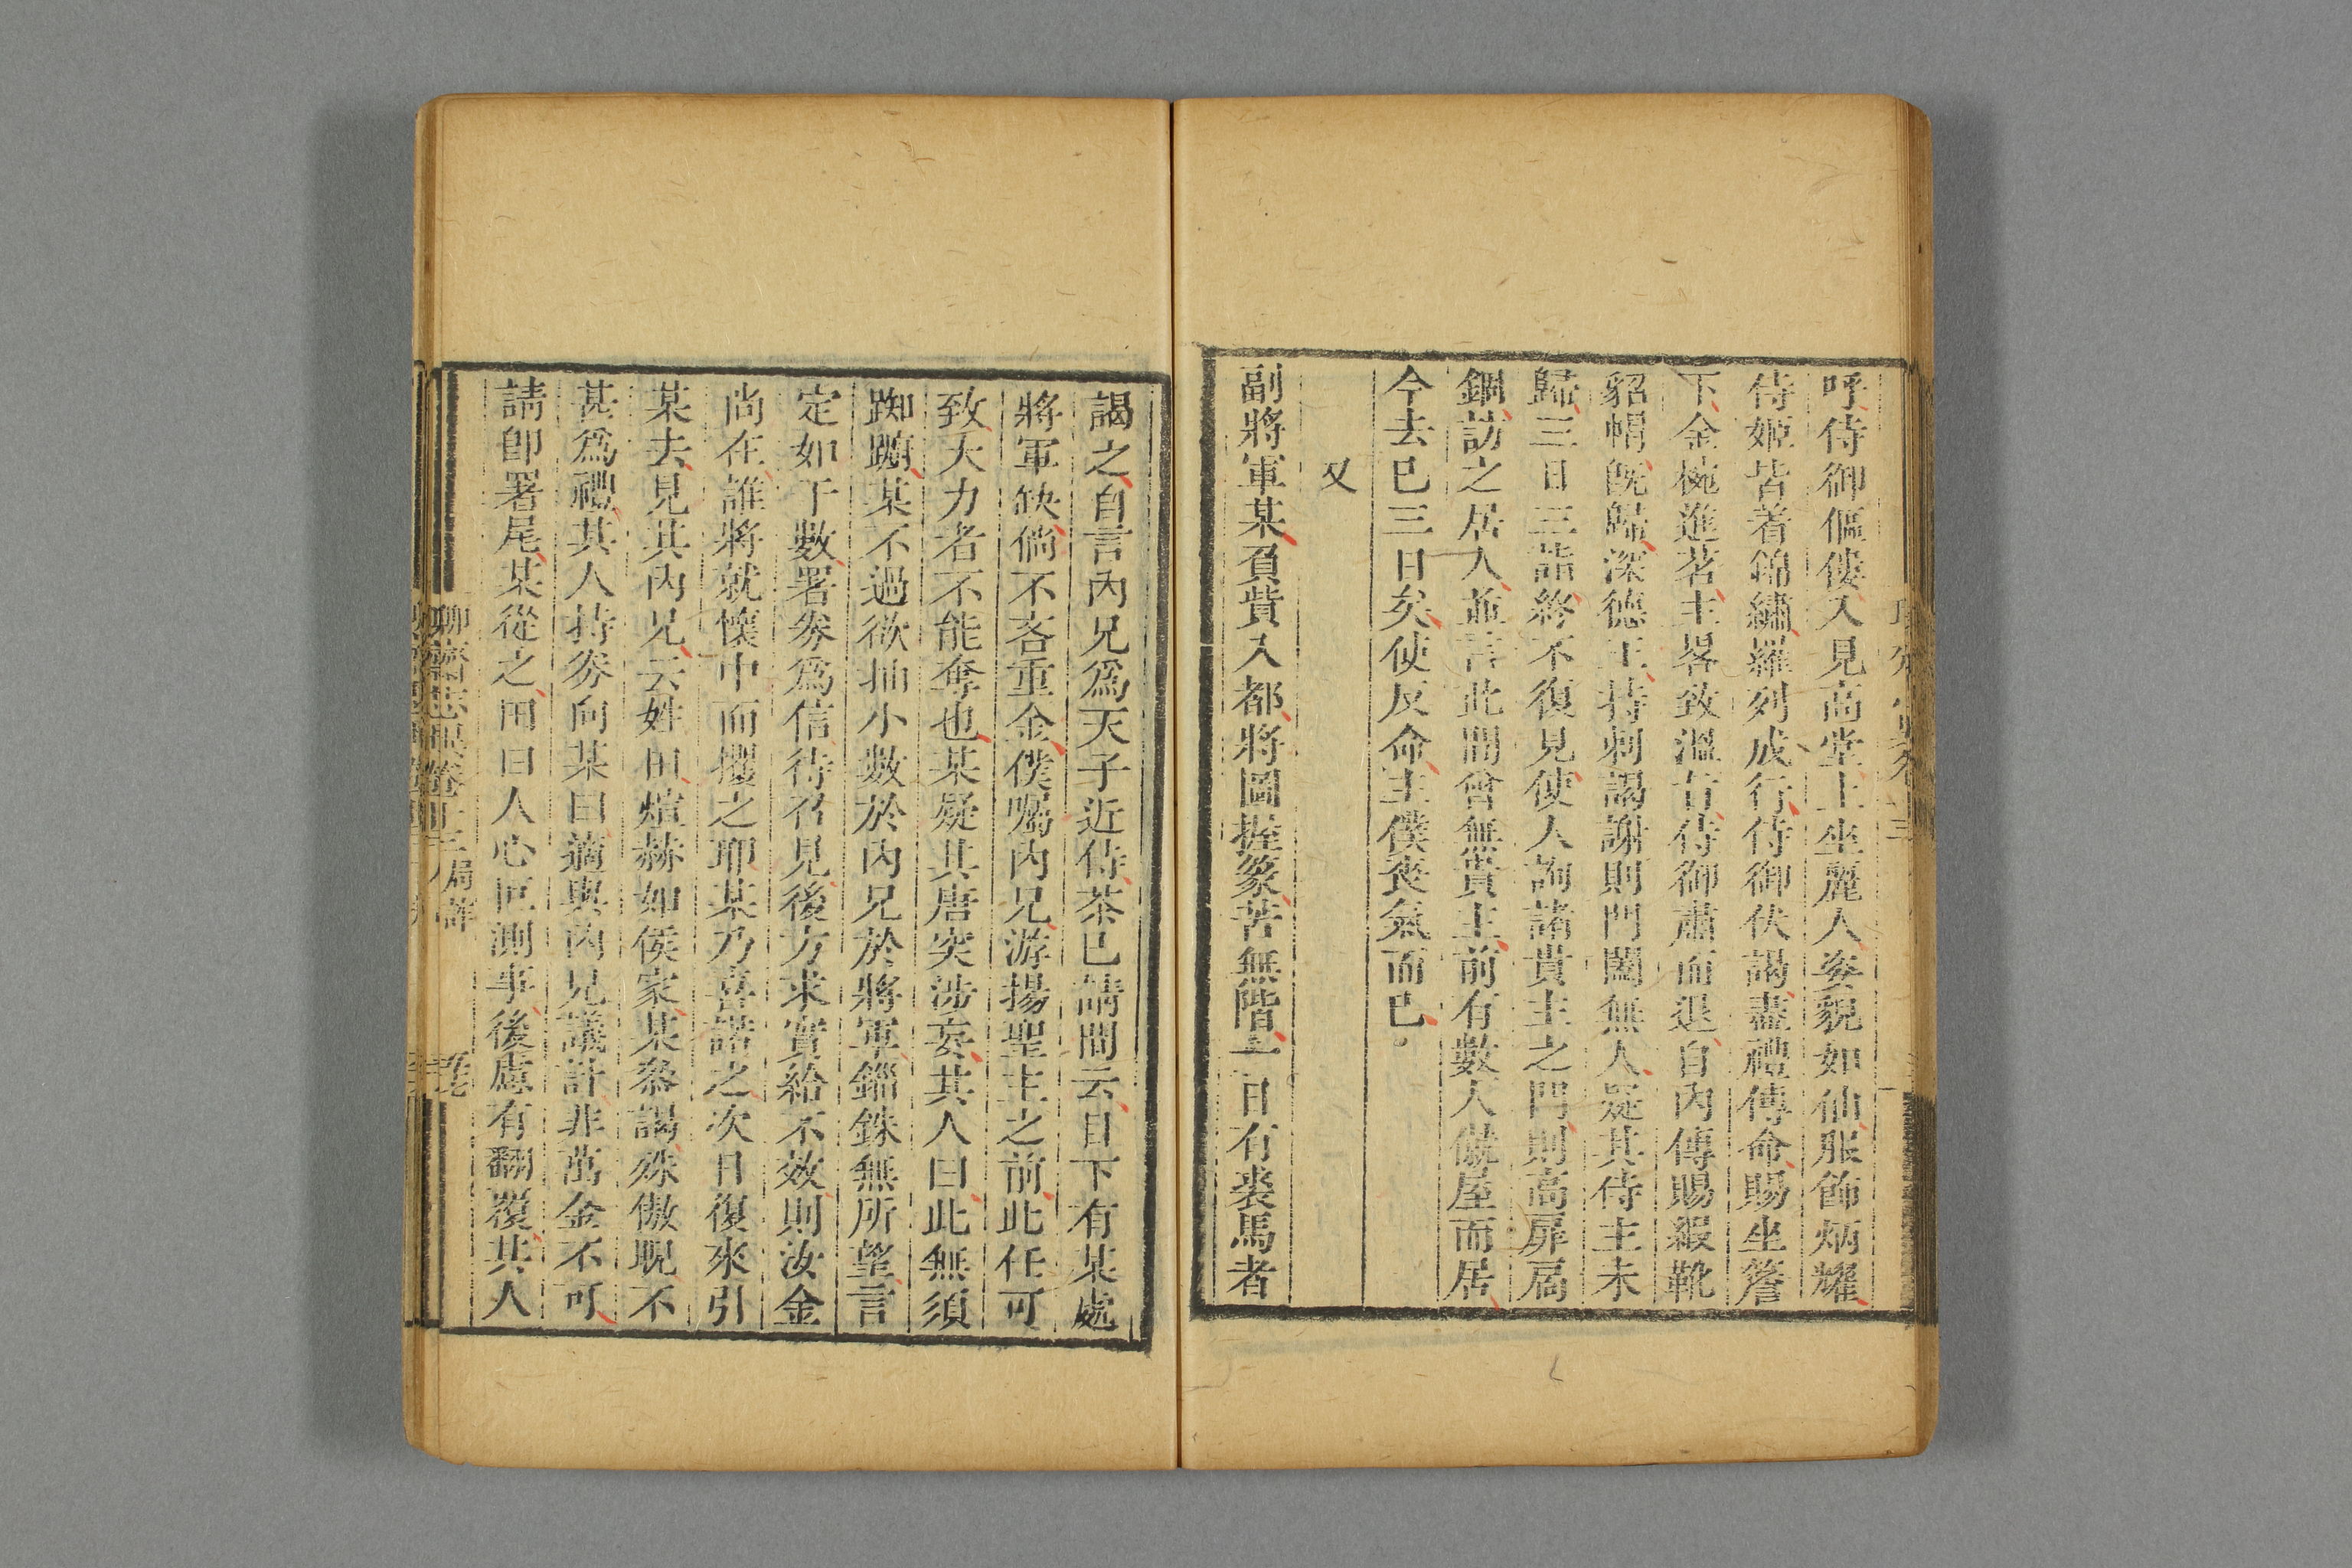 呼侍御傴僂入見高堂上坐麗人姿貌如仙服飾炳耀
侍姬皆着錦繡羅列成行侍御伏謁盡禮傳命賜坐簷
下金椀進茗主畧致溫旨侍御肅而退自內傳賜緞靴
貂帽旣歸深德王持刺謁謝則門闔無人疑其侍主未
歸三日三詣終不復見使人詢諸貴主之門則高扉扃
錮訪之居人並言此間曾無貴主前有數人僦屋而居
今去已三日矣使反命主僕喪氣而已
又
副將軍某負貲入都將圖握篆苦無階一日有裘馬者
謁之自言內兄爲天子近侍茶已請間云目下有某處
將軍缺倘不吝重金僕囑內兄游揚聖主之前此任可
致大力者不能奪也某疑其唐突涉妄其人曰此無須
踟躕某不過欲抽小數於內兄於將軍錙銖無所望言
定如干數署券爲信待召見後方求實給不效則汝金
尚在誰將就懷中而攫之耶某乃喜諾之次日復來引
某去見其內兄云姓田煊赫如侯家某參謁殊傲睨不
甚爲禮其人持券向某曰適與內兄議計非萬金不可
請卽署尾某從之田曰人心叵測事後慮有翻覆其人
聊齋志異卷十三 局詐